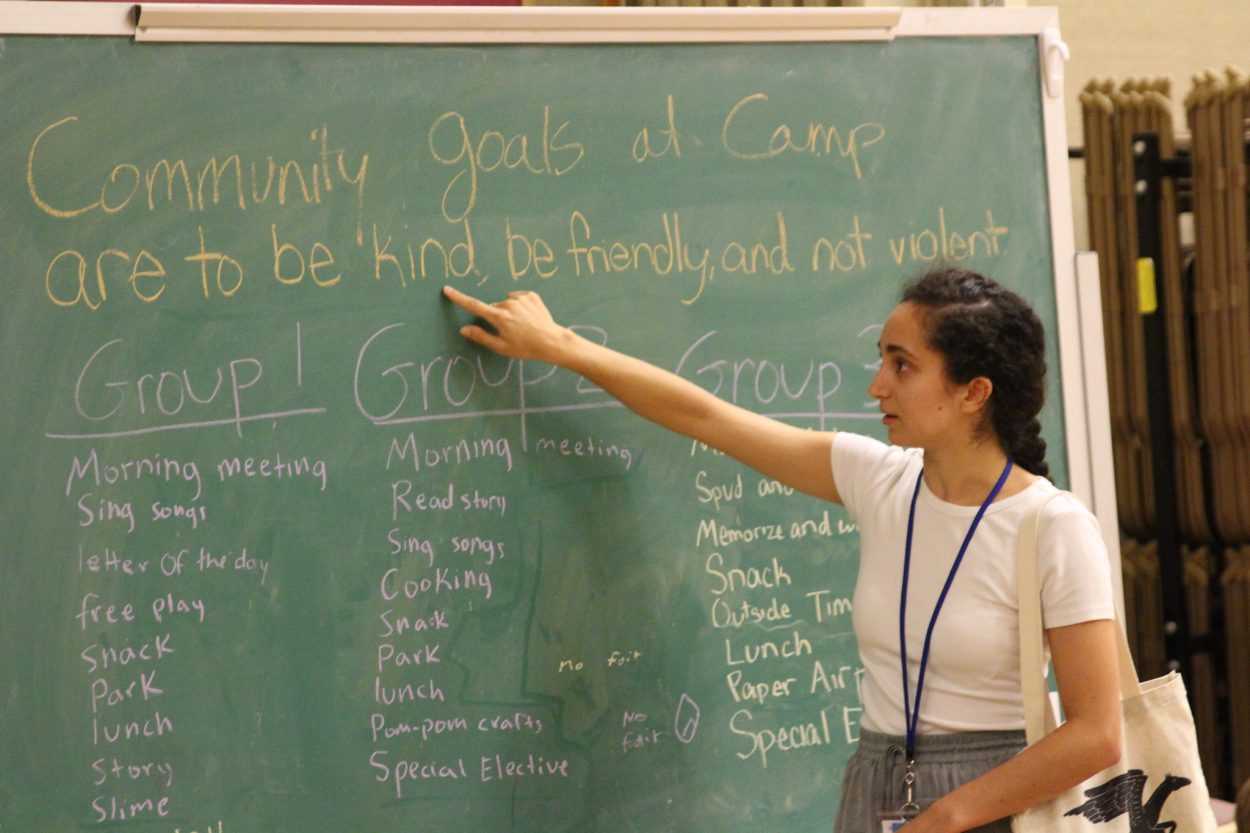 Community goals at Camp
are to be kind, be friendly, and not violent
Group 1
Morning meeting
Sing songs
letter of the day
free play
snack
Park
lunch
Story
Slime
Group 2
Morning meeting
Read story
Sing songs
Cooking
Snack
Park
lunch
Pom-pom crafts
Special Elective
no fair
No
fair
Group 3
Spud and
Memorize and
Snack
Outside
Lunch
Paper
Special